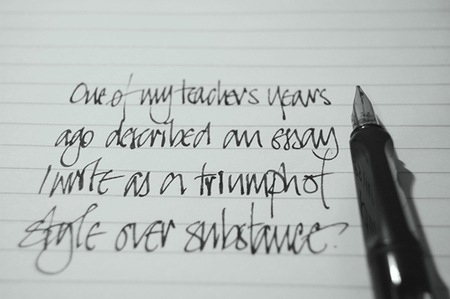 One of my teachers years
ago described an essay
I write as a triumph of
style over substance.